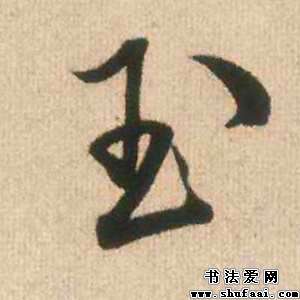 玉
书法爱网
www.shufaai.com